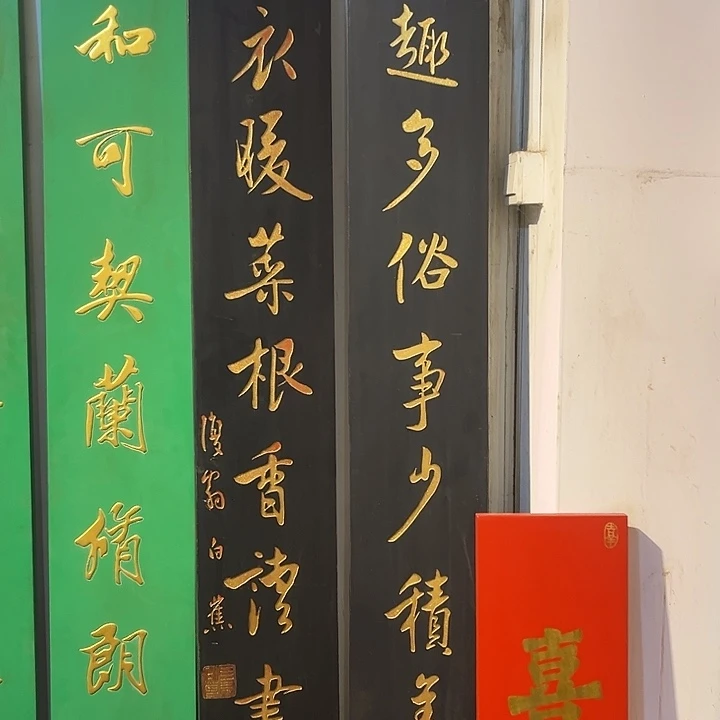 趣多俗事少積
衣暖菜根香讀書
復翁白蕉
和可契蘭脩朗
喜